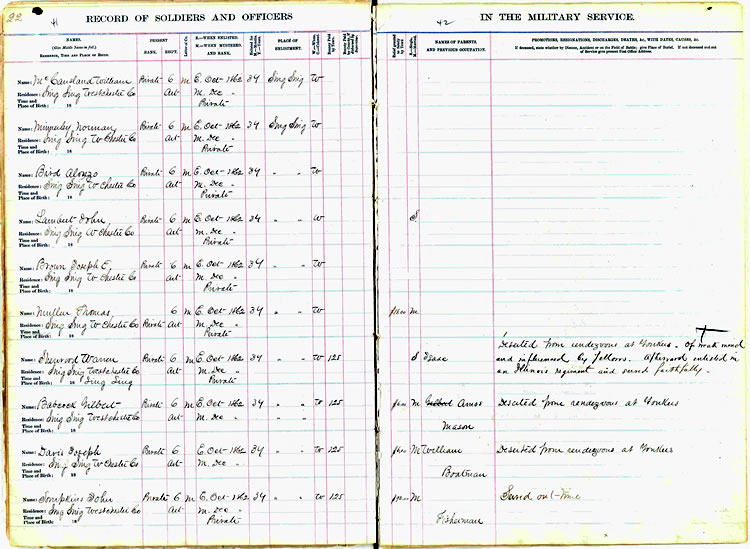 22
41
RECORD OF SOLDIERS AND OFFICERS
42
IN THE MILITARY SERVICE.
NAMES.
(Give Middle Name in full.)
RESIDENCE, TIME AND PLACE OF BIRTH.
PRESENT
RANK. REG'T.
PLACE OF ENLISTMENT.
NAMES OF PARENTS, AND PREVIOUS OCCUPATION.
PROMOTIONS, RESIGNATIONS, DISCHARGES, DEATHS, &c., WITH DATES, CAUSES, &c.
If deceased, state whether by Disease, Accident or on the Field of Battle; give Place of Burial. If not deceased and out of Service give present Post Office Address.
Name: McCausland William Private 6 M E. Oct 1862 34 Sing Sing W
Residence: Sing Sing Westchester Co Art M. Dec "
Time and Place of Birth: 18 Private
Name: Minnerley Norman Private 6 M E. Oct 1862 34 Sing Sing W
Residence: Sing Sing W Chester Co Art M. Dec "
Time and Place of Birth: 18 Private
Name: Bird Alonzo Private 6 M E. Oct 1862 34 " " W
Residence: Sing Sing W Chester Co Art M. Dec "
Time and Place of Birth: 18 Private
Name: Lambert John Private 6 M E. Oct 1862 34 " " W S
Residence: Sing Sing W Chester Co Art M. Dec "
Time and Place of Birth: 18 Private
Name: Brown Joseph E. Private 6 M E. Oct 1862 34 " " W
Residence: Sing Sing W Chester Co Art M. Dec "
Time and Place of Birth: 18 Private
Name: Muller Thomas 6 M E. Oct 1862 34 " " W M
Residence: Sing Sing W Chester Co Private Art M. Dec "
Time and Place of Birth: 18 Private
Deserted from rendezvous at Yonkers. Of weak mind
Name: Sherwood Warren Private 6 M E. Oct 1862 34 " " W 125 S Isaac and influenced by fellows. Afterward enlisted in
Residence: Sing Sing Westchester Co Art M. Dec " an Illinois regiment and served faithfully.
Time and Place of Birth: 18 Sing Sing Private
Name: Babcock Gilbert Private 6 M E. Oct 1862 34 " " W 125 M Gilbert Amos Deserted from rendezvous at Yonkers
Residence: Sing Sing Westchester Co Art M. Dec "
Time and Place of Birth: 18 Mason
Name: Davis Joseph Private 6 E. Oct 1862 34 " " W 125 M William Deserted from rendezvous at Yonkers
Residence: Sing Sing W Chester Co Art M. Dec "
Time and Place of Birth: 18 Boatman
Name: Tompkins John Private 6 M E. Oct 1862 34 " " W 125 M Served out time
Residence: Sing Sing Westchester Co Art M. Dec "
Time and Place of Birth: 18 Private Fisherman